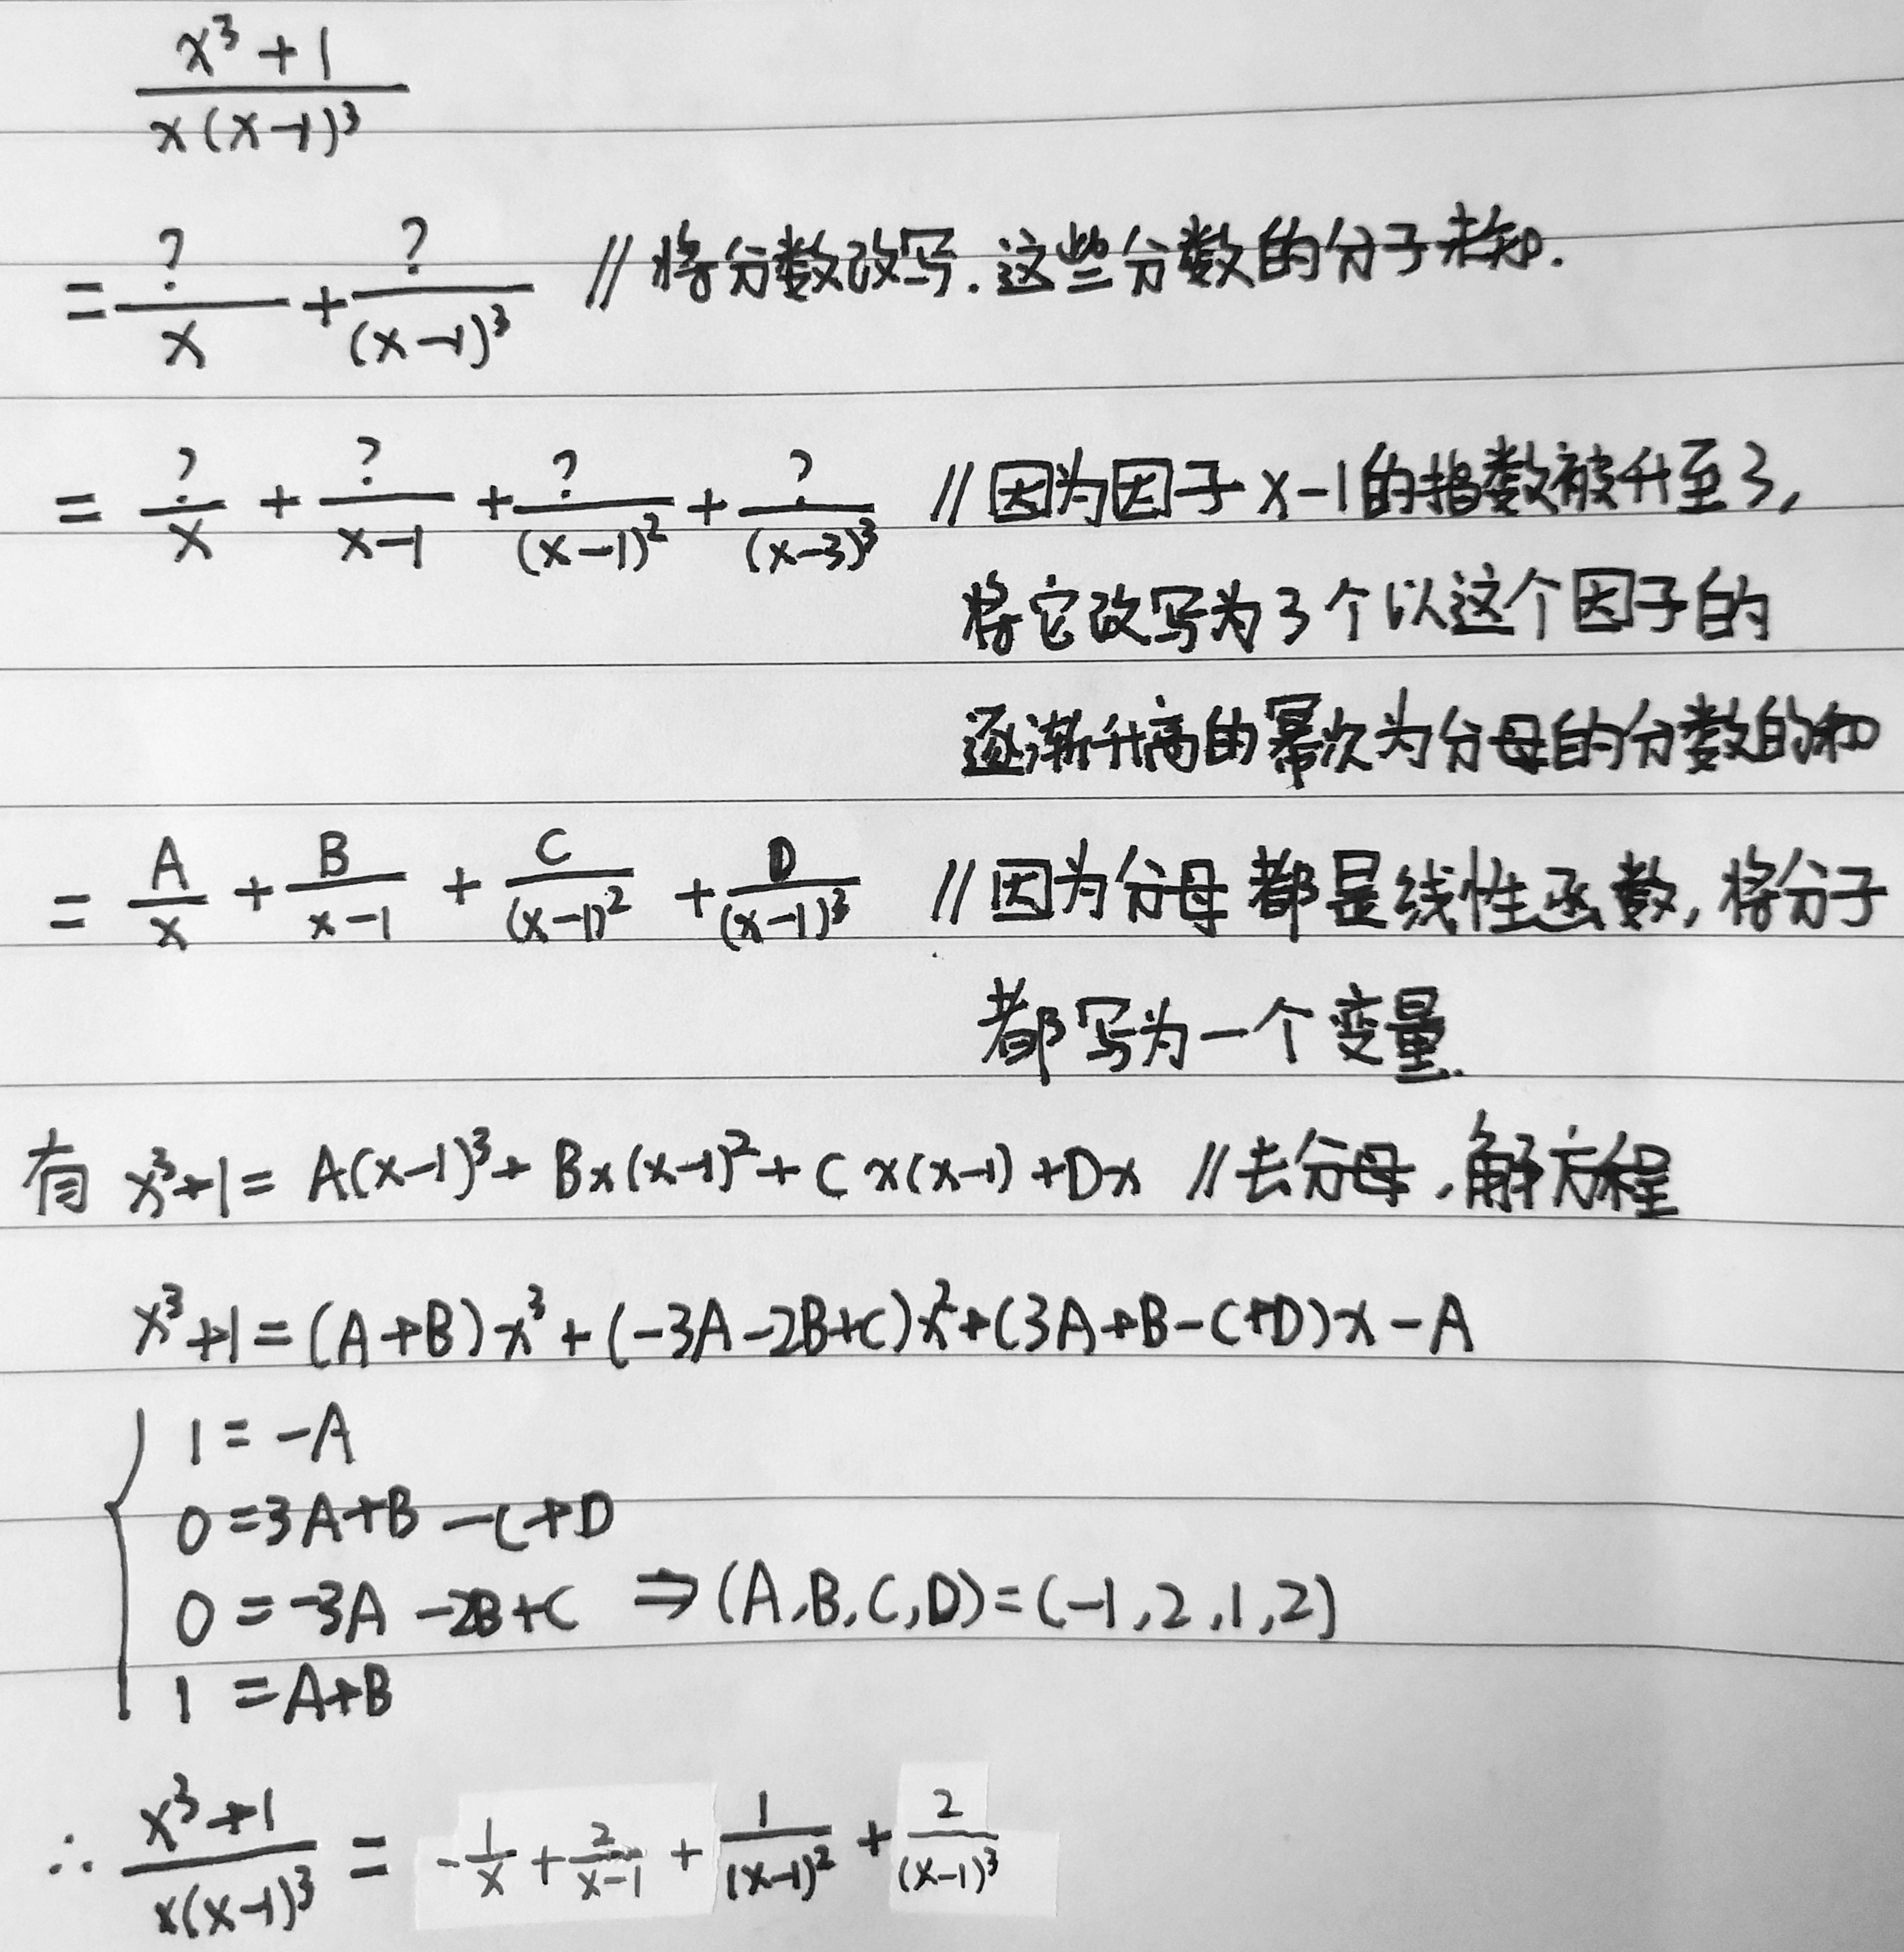 x³+1
x(x-1)³
= ?/x + ?/(x-1)³ // 将分数改写.这些分数的分子未知.
= ?/x + ?/x-1 + ?/(x-1)² + ?/(x-3)³ // 因为因子x-1的指数被升至3,
将它改写为3个以这个因子的
逐渐升高的幂次为分母的分数的和
= A/x + B/x-1 + C/(x-1)² + D/(x-1)³ // 因为分母都是线性函数,将分子
都写为一个变量.
有 x³+1= A(x-1)³+ Bx(x-1)²+ Cx(x-1)+Dx // 去分母,解方程
x³+1=(A+B)x³+(-3A-2B+C)x²+(3A+B-C+D)x-A
1=-A
0=3A+B-C+D
0=-3A-2B+C ⇒(A,B,C,D)=(-1,2,1,2)
1=A+B
∴ x³+1/x(x-1)³ = -1/x + 2/x-1 + 1/(x-1)² + 2/(x-1)³